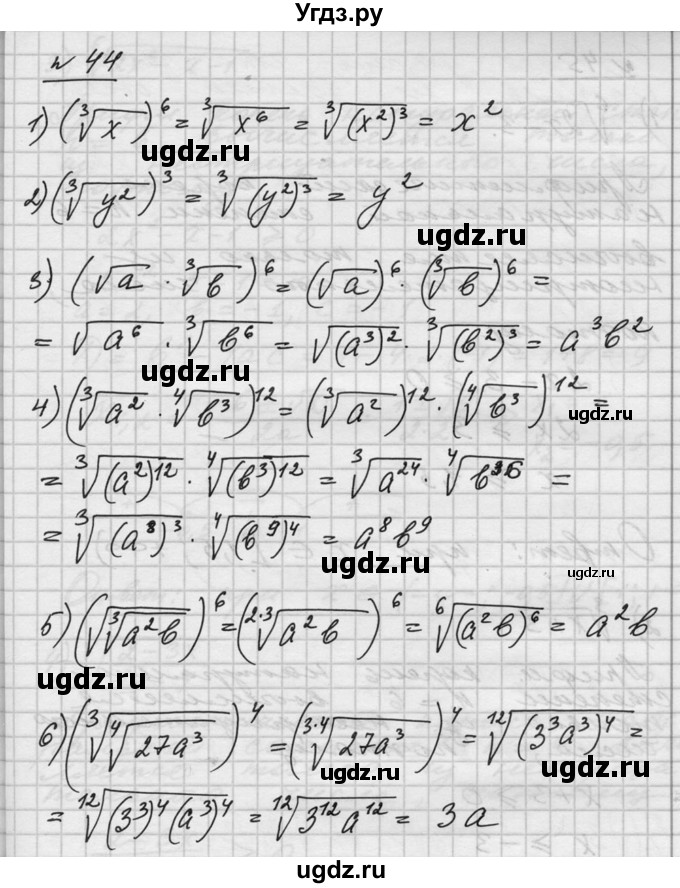 Угдз.ру
№ 44
1) (∛x)⁶ = ∛x⁶ = ∛(x²)³ = x²
ugdz.ru
2) (∛y²)³ = ∛(y²)³ = y²
ugdz.ru ugdz.ru
3) (√a · ∛b)⁶ = (√a)⁶ · (∛b)⁶ =
= √a⁶ · ∛b⁶ = √(a³)² · ∛(b²)³ = a³b²
ugdz.ru
4) (∛a² · ∜b³)¹² = (∛a²)¹² · (∜b³)¹² =
ugdz.ru
= ∛(a²)¹² · ∜(b³)¹² = ∛a²⁴ · ∜b³⁶ =
= ∛(a⁸)³ · ∜(b⁹)⁴ = a⁸b⁹
ugdz.ru
ugdz.ru
5) (√∛a²b)⁶ = (²·³√a²b)⁶ = ⁶√(a²b)⁶ = a²b
ugdz.ru
6) (∛∜27a³)⁴ = (³·⁴√27a³)⁴ = ¹²√(3³a³)⁴ =
ugdz.ru ugdz.ru
= ¹²√(3³)⁴(a³)⁴ = ¹²√3¹²a¹² = 3a
ugdz.ru
ugdz.ru